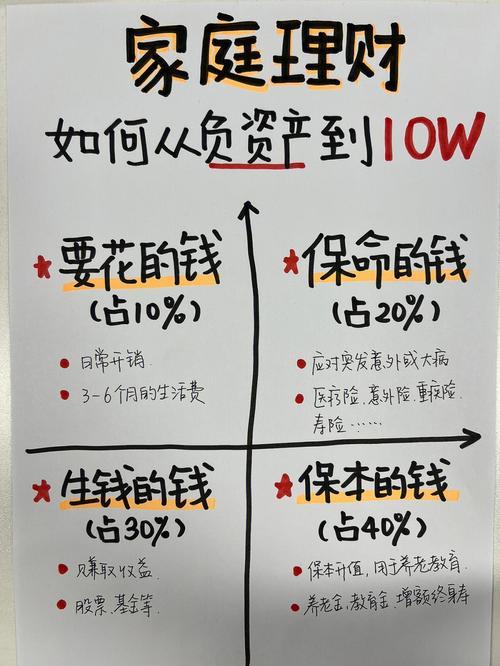 家庭理财
如何从负资产到10W
要花的钱
(占10%)
日常开销.
3-6个月的生活费
保命的钱
(占20%)
应对突发意外或大病
医疗险.意外险.重疾险.
寿险……
生钱的钱
(占30%)
赚取收益.
股票.基金等.
保本的钱
(占40%)
保本升值,用于养老教育.
养老金,教育金.增额终身寿